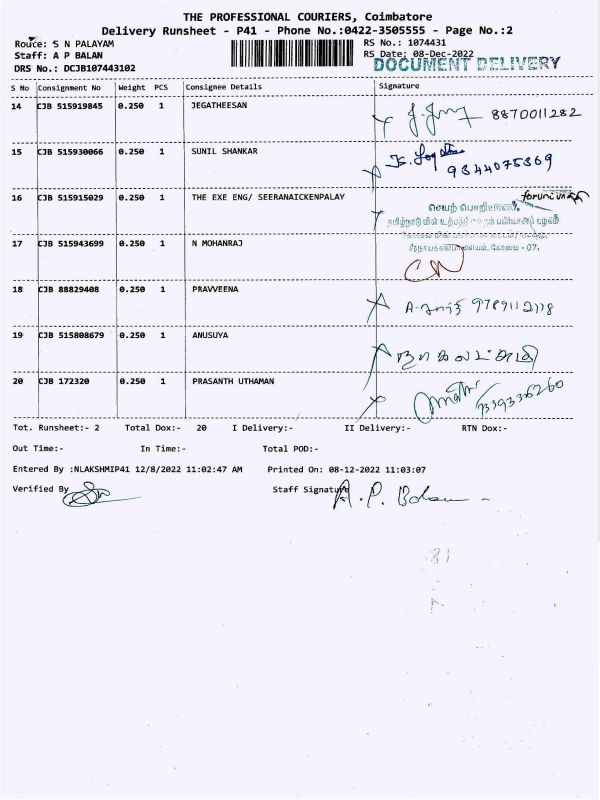 THE PROFESSIONAL COURIERS, Coimbatore
Delivery Runsheet - P41 - Phone No.:0422-3505555 - Page No.:2
Route: S N PALAYAM
RS No.: 1074431
Staff: A P BALAN
RS Date: 08-Dec-2022
DRS No.: DCJB107443102
DOCUMENT DELIVERY
S No Consignment No Weight PCS Consignee Details Signature
14 CJB 515919845 0.250 1 JEGATHEESAN 8870011282
15 CJB 515930066 0.250 1 SUNIL SHANKAR 9344075369
16 CJB 515915029 0.250 1 THE EXE ENG/ SEERANAICKENPALAY
செயற் பொறியாளர்,
தமிழ்நாடு மின் உற்பத்தி மற்றும் பகிர்மானக் கழகம்
கோவை - 07.
17 CJB 515943699 0.250 1 N MOHANRAJ
18 CJB 88829408 0.250 1 PRAVVEENA 9789112118
19 CJB 515808679 0.250 1 ANUSUYA
20 CJB 172320 0.250 1 PRASANTH UTHAMAN
Tot. Runsheet:- 2 Total Dox:- 20 I Delivery:- II Delivery:- RTN Dox:-
Out Time:- In Time:- Total POD:-
Entered By :NLAKSHMIP41 12/8/2022 11:02:47 AM Printed On: 08-12-2022 11:03:07
Verified By Staff Signature A. P. Balan